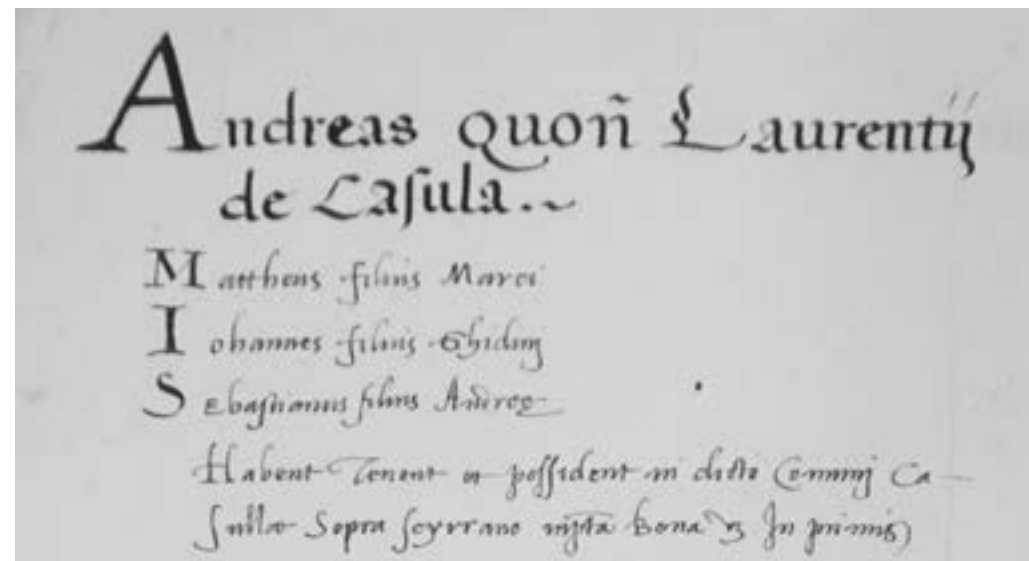 Andreas quon̄ Laurentij
de Casula..~
Mattheus filius Marci
Iohannes filius Ghidinj
Sebastianus filius Andreę
Habent Tenent et possident in dicto Comunj Ca-
sulæ Sopra scyrrano bona In primis